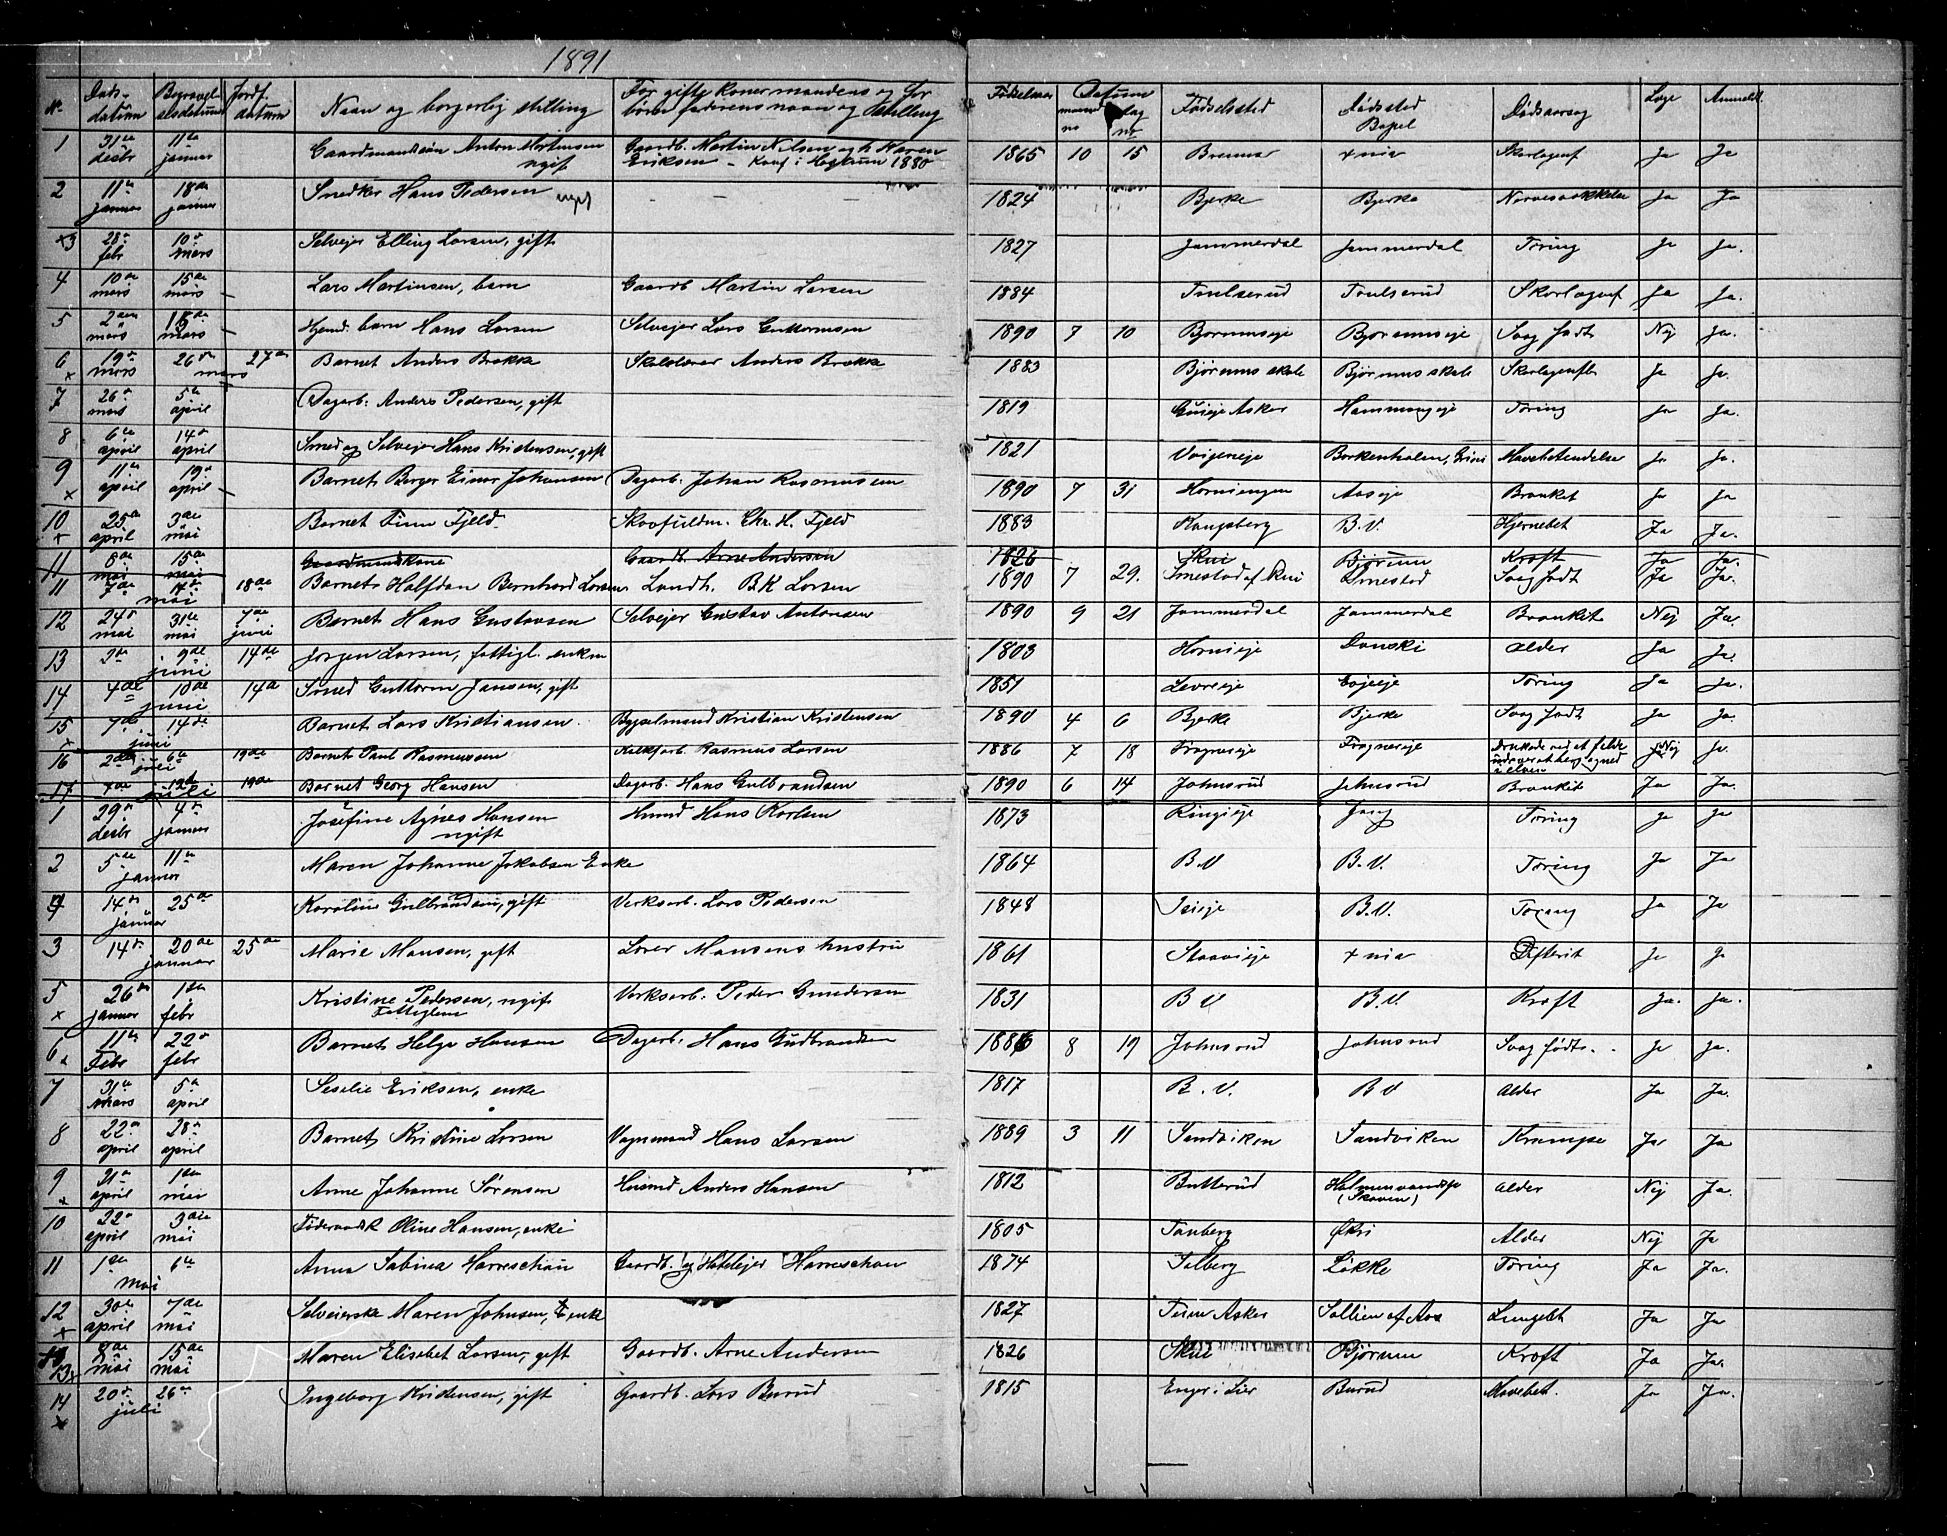 1891
No. Døds-datum Begravel-sesdatum Jordf. datum Navn og borgerlig stilling For gifte koner mandens og for børn faderens navn og Stilling Fødselsaar Datum maaned no dag no Fødselssted Dødssted Bopel Dødsaarsag Læge Anmeldt.
1 31te desbr 11te januar Gaardmandssøn Anton Mortensen ugif Gaardb. Martin Nelsen og h. Maren Eriksen 1865 10 15 + nia Skarlagenf Ja Ja
2 11te januar 18de januar Snedker Hans Pedersen ugif - - - 1824 Bjerke Bjerke Ja Ja
x3 28de febr 10de mars Selvejer Elling Larsen, gift 1827 Jammerdal Jammerdal Tæring Ja Ja.
4 10de mars 15de mars Lars Martinsen, barn Gaardb Martin Larsen 1884 Toulserud Toulserud Skarlagenf Ja Ja.
5 2den mars 15de mars Hjemd. barn Hans Larsen Selvejer Lars Guttormsen 1890 7 10 Bjørumseje Bjørumseje Svag født Nej Ja.
6 x 19de mars 26de mars 27de Barnet Anders Brække Skolelærer Anders Brække 1883 Bjørums skole Bjørums skole Skarlagenfb Ja Ja.
7 26de mars 5te april Dagarb. Anders Pedersen, gift 1819 Asker Hammangeje Tæring Ja Ja.
8 6te april 14de april Smed og Selvejer Hans Kristensen, gift 1821 Mavebetændelse Ja Ja.
9 x 11te april 19de april Barnet Berger Einar Johansen Dagarb. Johan Rasmussen 1890 7 31 Hornsengen Aaseje Bronket Ja Ja
10 x 25de april 3die mai Barnet Finn Fjeld Skovfuldm. Chr. H. Fjeld 1883 Kongsberg B.V. Hjernebet Ja Ja.
11 8de mai 15de mai Gaardmandskone Gaardb. Arne Andersen 1826 Skui Bjørum Kræft Ja Ja.
11 7de 14de mai 18de Barnet Halfdan Bernhard Larsen Landh. B K Larsen 1890 7 29. Smestad af Skui Smestad Svag født Ja Ja.
12 24de mai 31te mai 7de juni Barnet Hans Gustavsen Selvejer Gustav Antonsen 1890 9 21 Jammerdal Jammerdal Bronkit Nej Ja.
13 3de 9de juni 14de Jørgen Larsen, fattigl. enkm 1803 Hornseje Danski Alder Ja Ja.
14 4de 10de juni 14de Smed Guttorm Jansen, gift 1851 Levreeje Evjeeje Tæring Ja Ja.
15 x 7de 14de juni Barnet Lars Kristiansen. Bygselmand Kristian Kristensen 1890 4 6 Bjerke Bjerke Svag født Ja Ja.
16 2den 6te juli 19de Barnet Paul Rasmussen Kalkarb. Rasmus Larsen 1886 7 18 Frogneseje Frogneseje Druknede ved at falde i elven Nej Ja.
17 4de 12te juli 19de Barnet Georg Hansen Dagarb. Hans Gulbrandsen 1890 6 14 Johnsrud Johnsrud Bronkit Ja Ja.
1 29de desbr 4de januar Josefine Agnes Hansen ugift Husmd Hans Karlsen 1873 Ringieje Tæring Ja Ja
2 5te 11te januar Maren Johanne Jakobsen Enke 1864 B.V B.V. Tæring Ja Ja
4 14de januar 25de Karoline Gulbrandsen, gift Verksarb. Lars Pedersen 1848 Isieje B.V. Tæring Ja Ja
3 14de 20de januar 25de Marie Mansen, gift Lærer Mansens hustru 1861 Staavieje + nia Difterit Ja Ja
5 x 26de januar 1ste febr Kristine Pedersen, ugift Fattiglem Verksarb. Peder Gundersen 1831 B V B.V. Kræft Ja. Ja.
6 x 11te Febr 22de febr Barnet Helge Hansen Dagarb. Hans Gudbrandsen 1886 8 19 Johnsrud Johnsrud Svag født. Ja Ja.
7 31te mars 5te april Seselie Eriksen, enke 1817 B.V. B V Alder Ja Ja.
8 22de april 28de april Barnet Kristine Larsen Vognmand Hans Larsen 1889 3 11 Sandviken Sandviken Krampe Ja Ja
9 x 21de april 1ste mai Anne Johanne Sørensen Husmd Anders Hansen 1812 Butterud (Skoven) Alder Nej Ja.
10 22de april 3die mai Føderaadsk Oline Hansen, enke 1805 Tanberg Økri Alder Nej Ja
11 1ste 6te mai Anna Sabina Harreschou Gaardb. og Hotelejer Harreschou 1874 Solberg Løkke Tæring Ja Ja.
12 x 30te april 7de mai Selveierske Maren Johnsen, enke 1827 Asker Sollien af Aas Lungebt Ja Ja
13 x 8de mai 15de mai Maren Elisebet Larsen, gift Gaardb. Arne Andersen 1826 Skui Bjørum Kræft Ja Ja.
14 x 20de 26de juli Ingeborg Kristensen, gift Gaardb. Lars Burud 1815 Enger i Lier Burud Mavebet. Ja Ja.